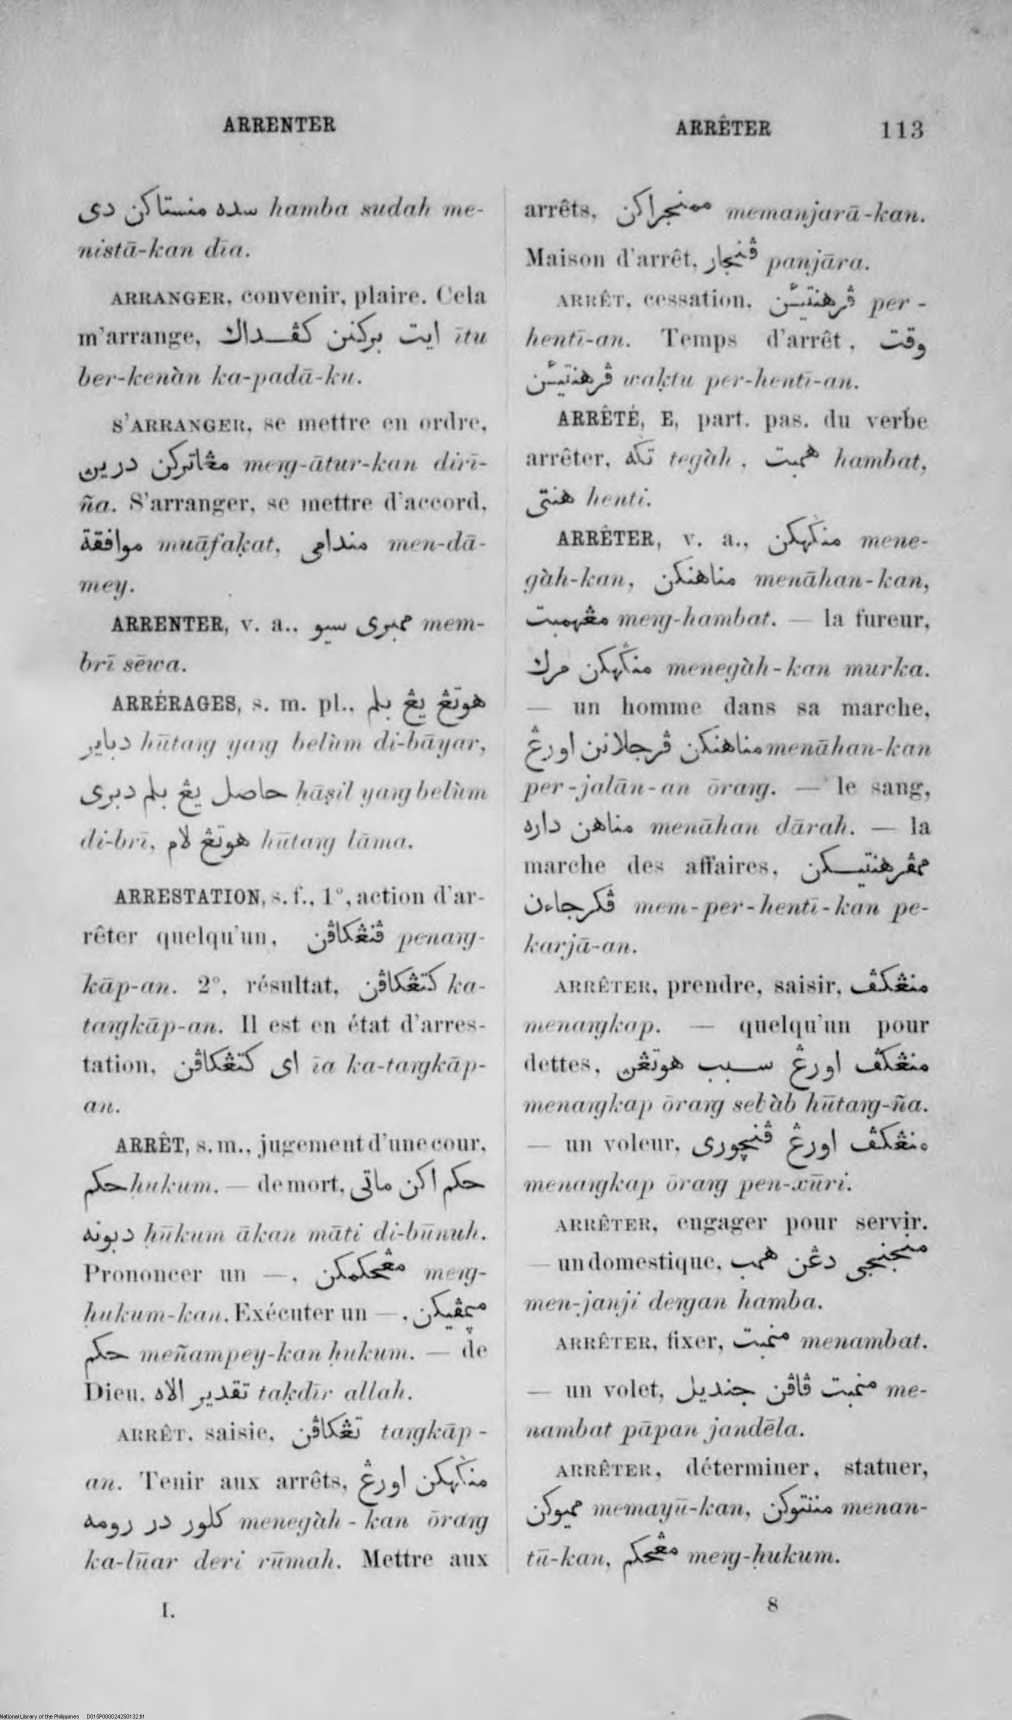 ARRENTER
ARRÊTER 113
سده منستاكن دى hamba sudah me-
nistā-kan dīa.
ARRANGER, convenir, plaire. Cela
m'arrange, ايت بركنن كڤداك ītu
ber-kenàn ka-padā-ku.
S'ARRANGER, se mettre en ordre,
مڠاتركن درين meng-ātur-kan dirī-
ña. S'arranger, se mettre d'accord,
موافقة muāfaḳat, مندامى men-dā-
mey.
ARRENTER, v. a., ممبرى سيو mem-
brī sēwa.
ARRÉRAGES, s. m. pl., هوتڠ يڠ بلم
دباير hūtang yang belùm di-bāyar,
حاصل يڠ بلم دبرى hāṣil yang belùm
di-brī, هوتڠ لام hūtang lāma.
ARRESTATION, s. f., 1°, action d'ar-
rêter quelqu'un, ڤنڠكاڤن penang-
kāp-an. 2°, résultat, كتڠكاڤن ka-
tangkāp-an. Il est en état d'arres-
tation, اى كتڠكاڤن īa ka-tangkāp-
an.
ARRÊT, s. m., jugement d'une cour,
حكم hukum. — de mort, حكم اكن ماتى
دبونه ḥūkum ākan māti di-būnuh.
Prononcer un —, مڠحكمكن meng-
ḥukum-kan. Exécuter un —, ميمڤيكن
حكم meñampey-kan ḥukum. — de
Dieu, تقدير الاه taḳdīr allah.
ARRÊT, saisie, تڠكاڤن tangkāp-
an. Tenir aux arrêts, منݢهكن اورڠ
كلور در رومه menegàh-kan ōrang
ka-lūar deri rūmah. Mettre aux
I.
arrêts, ممنجراكن memanjarā-kan.
Maison d'arrêt, ڤنجار panjāra.
ARRÊT, cessation, ڤرهنتيئن per-
hentī-an. Temps d'arrêt, وقت
ڤرهنتيئن waḳtu per-hentī-an.
ARRÊTÉ, E, part. pas. du verbe
arrêter, تݢه tegàh, همبت hambat,
هنتى henti.
ARRÊTER, v. a., منݢهكن mene-
gàh-kan, مناهنكن menāhan-kan,
مڠهمبت meng-hambat. — la fureur,
منݢهكن مرك menegàh-kan murka.
— un homme dans sa marche,
مناهنكن ڤرجلانن اورڠ menāhan-kan
per-jalān-an ōrang. — le sang,
مناهن داره menāhan dārah. — la
marche des affaires, ممڤرهنتيكن
ڤكرجاءن mem-per-hentī-kan pe-
karjā-an.
ARRÊTER, prendre, saisir, منڠكڤ
menangkap. — quelqu'un pour
dettes, منڠكڤ اورڠ سبب هوتڠن
menangkap ōrang sebàb hūtang-ña.
— un voleur, منڠكڤ اورڠ ڤنچورى
menangkap ōrang pen-xūri.
ARRÊTER, engager pour servir.
— un domestique, منجنجى دڠن همب
men-janji dengan hamba.
ARRÊTER, fixer, منمبت menambat.
— un volet, منمبت ڤاڤن جنديل me-
nambat pāpan jandēla.
ARRÊTER, déterminer, statuer,
مميوكن memayū-kan, مننتوكن menan-
tū-kan, مڠحكم meng-ḥukum.
8
National Library of the Philippines